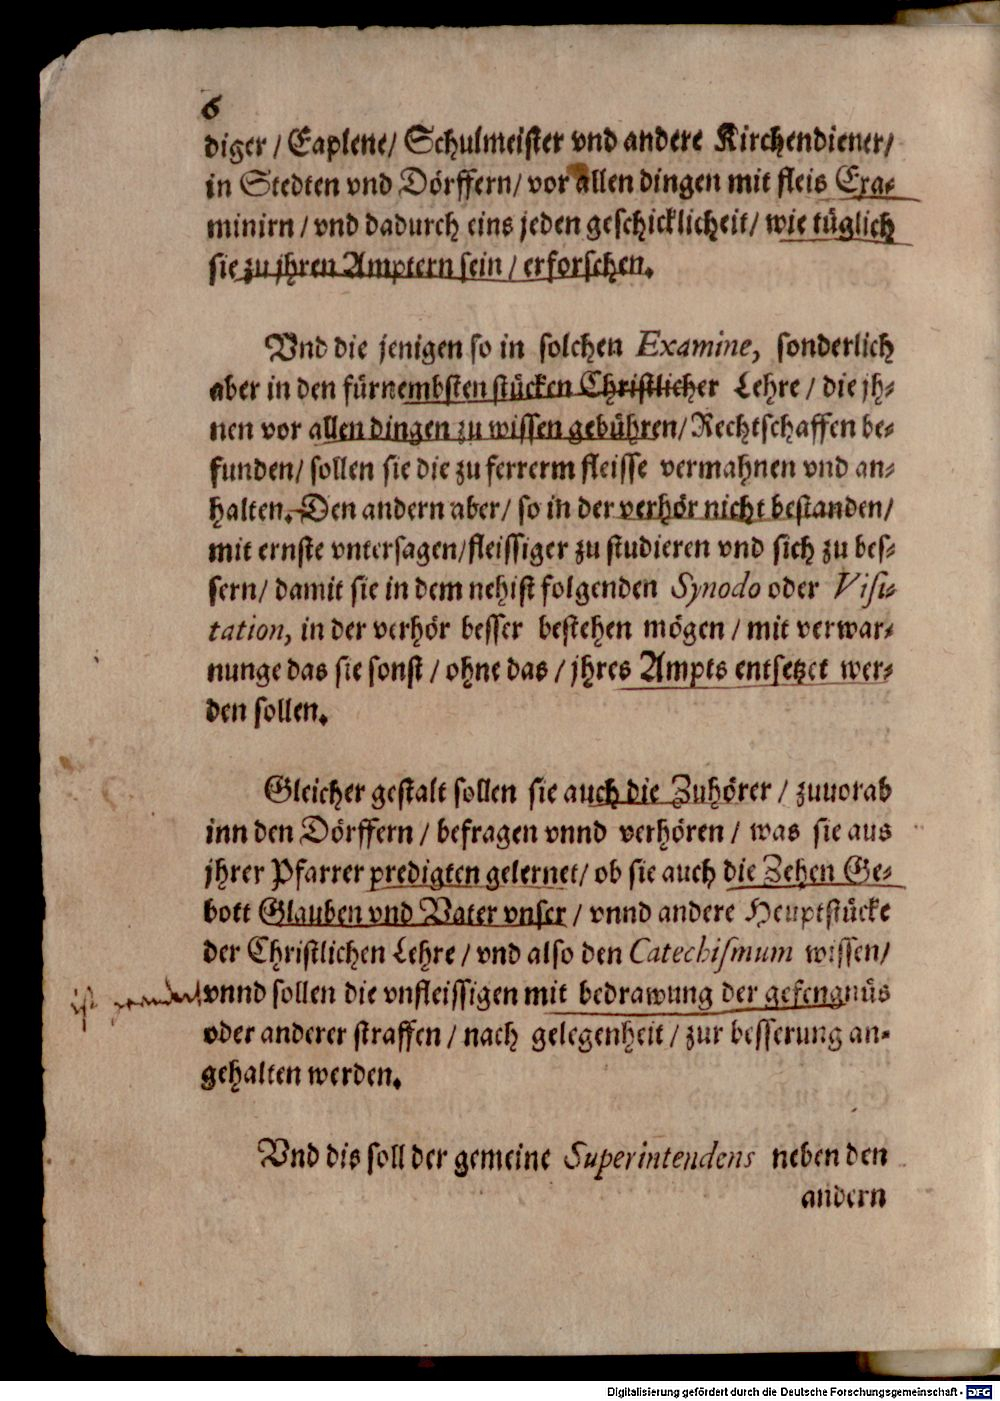 6
diger / Caplene / Schulmeister vnd andere Kirchendiener /
in Stedten vnd Dörffern / vor allen dingen mit fleis Exa-
minirn / vnd dadurch eins jeden geschicklicheit / wie tüglich
sie zu jhren Amptern sein / erforschen.
Vnd die jenigen so in solchen Examine, sonderlich
aber in den fürnembsten stücken Christlicher Lehre / die jh-
nen vor allen dingen zu wissen gebühren / Rechtschaffen be-
funden / sollen sie die zu ferrerm fleisse vermahnen vnd an-
halten. Den andern aber / so in der verhör nicht bestanden /
mit ernste vntersagen / fleissiger zu studieren vnd sich zu bes-
sern / damit sie in dem nehist folgenden Synodo oder Visi-
tation, in der verhör besser bestehen mögen / mit verwar-
nunge das sie sonst / ohne das / jhres Ampts entsetzet wer-
den sollen.
Gleicher gestalt sollen sie auch die Zuhörer / zuuorab
inn den Dörffern / befragen vnnd verhören / was sie aus
jhrer Pfarrer predigten gelernet / ob sie auch die Zehen Ge-
bott Glauben vnd Vater vnser / vnnd andere Heuptstücke
der Christlichen Lehre / vnd also den Catechismum wissen /
ist
vnnd sollen die vnfleissigen mit bedrawung der gefengnüs
oder anderer straffen / nach gelegenheit / zur besserung an-
gehalten werden.
Vnd dis soll der gemeine Superintendens neben den
andern
Digitalisierung gefördert durch die Deutsche Forschungsgemeinschaft - DFG